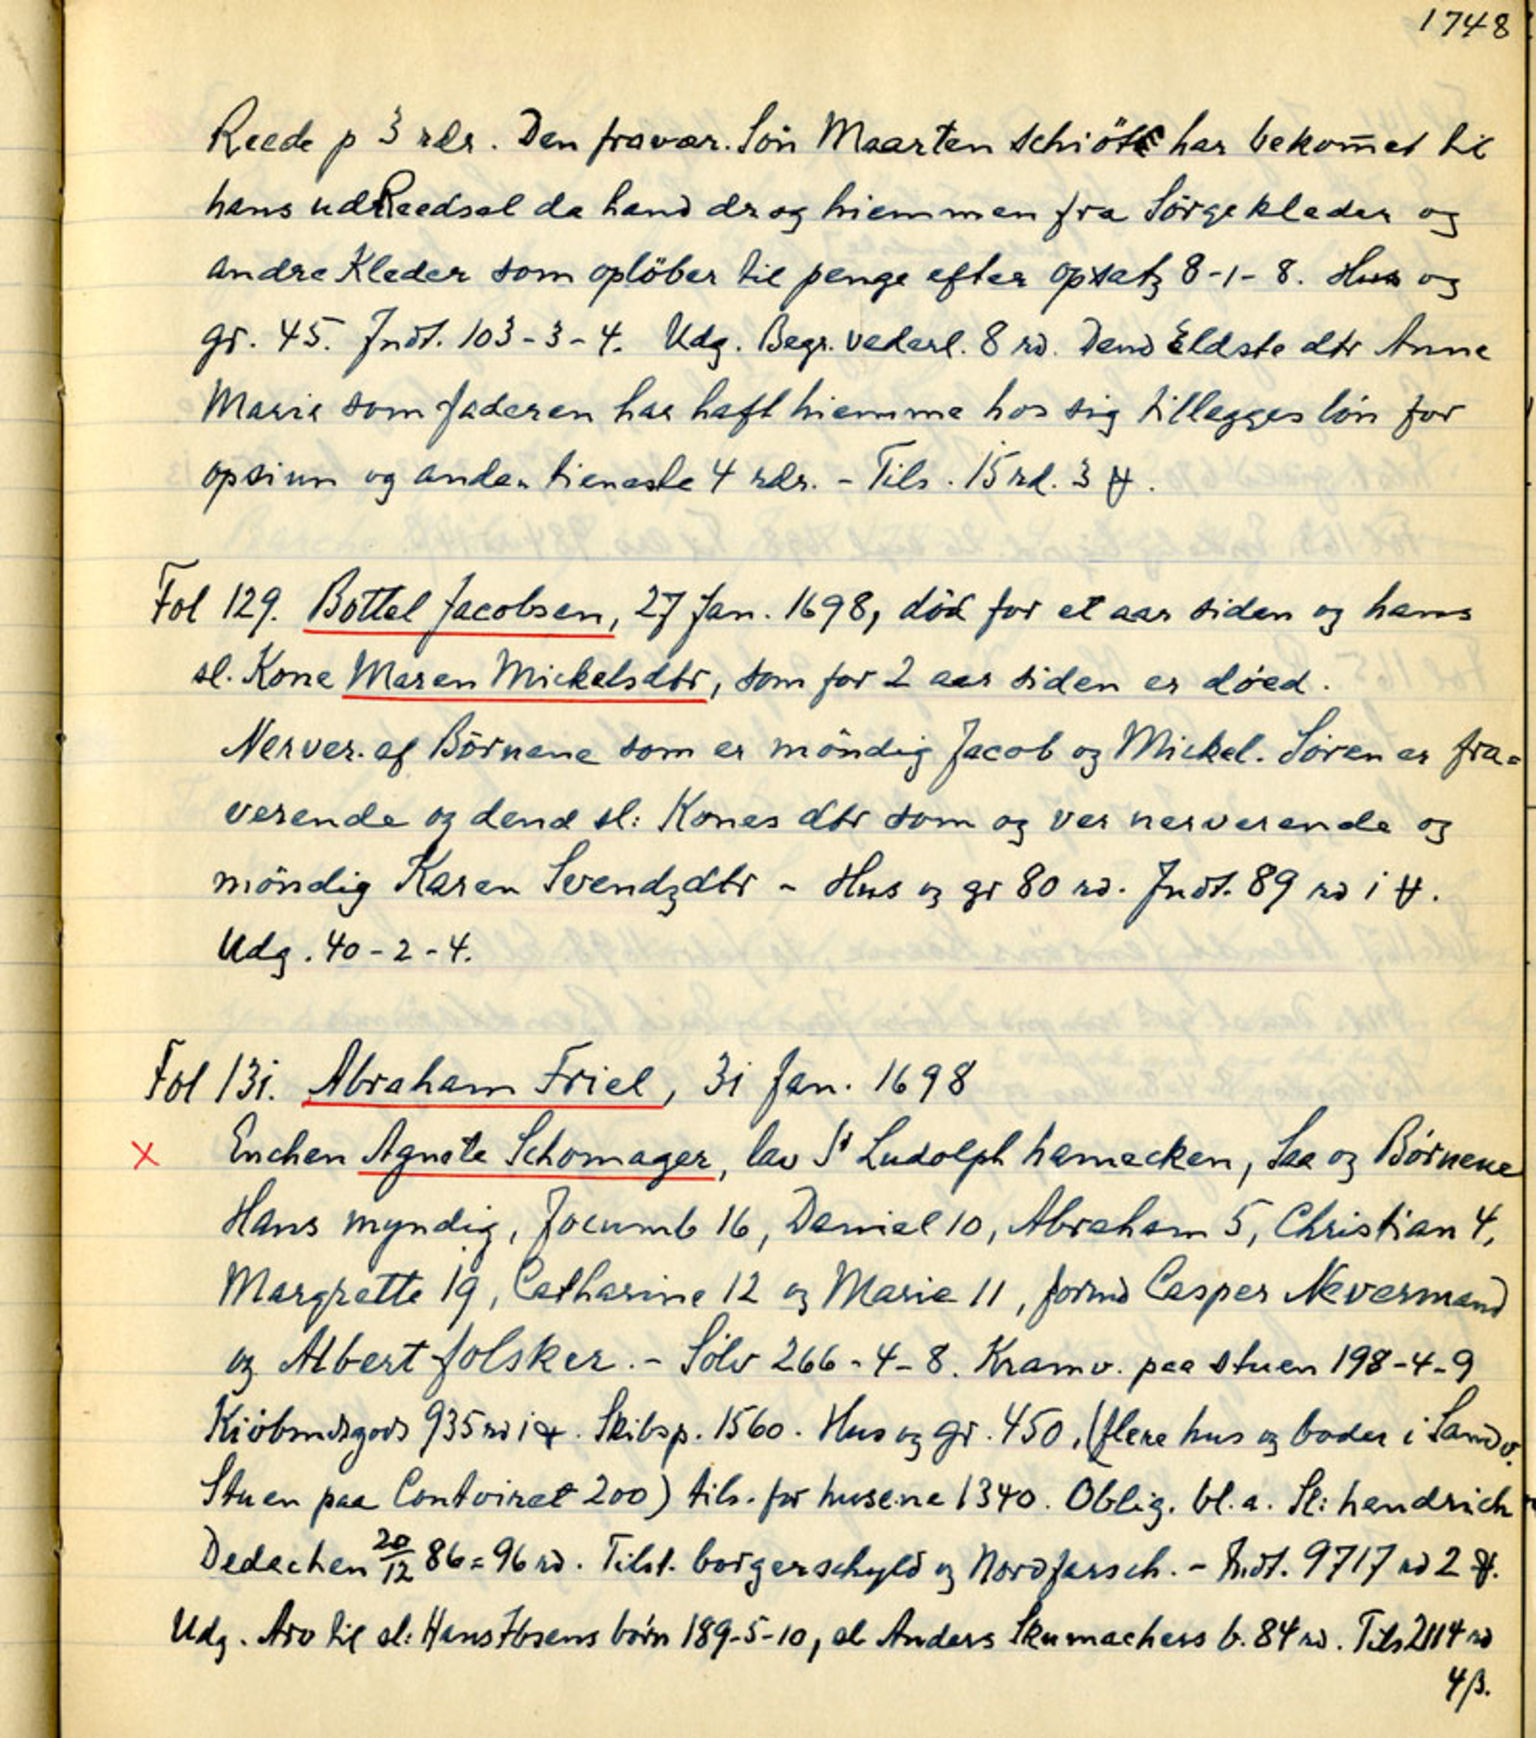 1748
Reede p 3 rdr. Den fravær. Sön Maarten Schiötte har bekom̄et til
hans udReedsel da hand drog hiemmen fra Sörgekleder og
andre Kleder som oplöber til penge efter opsatz 8-1-8. Hus og
gr. 45. Indt. 103-3-4. Udg. Begr. vederl. 8 rd. Dend Eldste dtr Anne
Marie som faderen har haft hiemme hos sig tillegges lön for
opsiun og anden tieneste 4 rdr. - Tils. 15 rd. 3 ꝟ.
Fol 129. Bottel Jacobsen, 27 Jan. 1698, död for et aar siden og hans
sl. Kone Maren Mickelsdtr, som for 2 aar siden er döed.
Nerver. af Börnene som er möndig Jacob og Mickel. Sören er fra=
verende og dend sl: Kones dtr som og ver nerverende og
möndig Karen Svendzdtr - Hus og gr 80 rd. Indt. 89 rd i ꝟ.
Udg. 40-2-4.
Fol 13i. Abraham Friel, 3i Jan. 1698
x Enchen Agnete Schomager, lav Sr Ludolph hamecken, Saa og Börnene
Hans myndig, Jocumb 16, Daniel 10, Abraham 5, Christian 4,
Margrette 19, Catharine 12 og Marie 11, formd Casper Nevermand
og Albert folsker. - Sölv 266-4-8. Kramv. paa stuen 198-4-9
Kiöbmdsgods 935 rd i ꝟ. Skibsp. 1560. Hus og gr. 450, (flere hus og boder i Sandv.
Stuen paa Contoiret 200) tils. for husene 1340. Oblig. bl.a. Sl: hendrich
Dedechen 20/12 86 = 96 rd. Tilst. borgerschyld og Nordfarsch. - Indt. 9717 rd 2 ꝟ.
Udg. Arv til sl: Hans Ibsens börn 189-5-10, sl Anders Skumachers b. 84 rd. Tils 2114 rd
4 β.